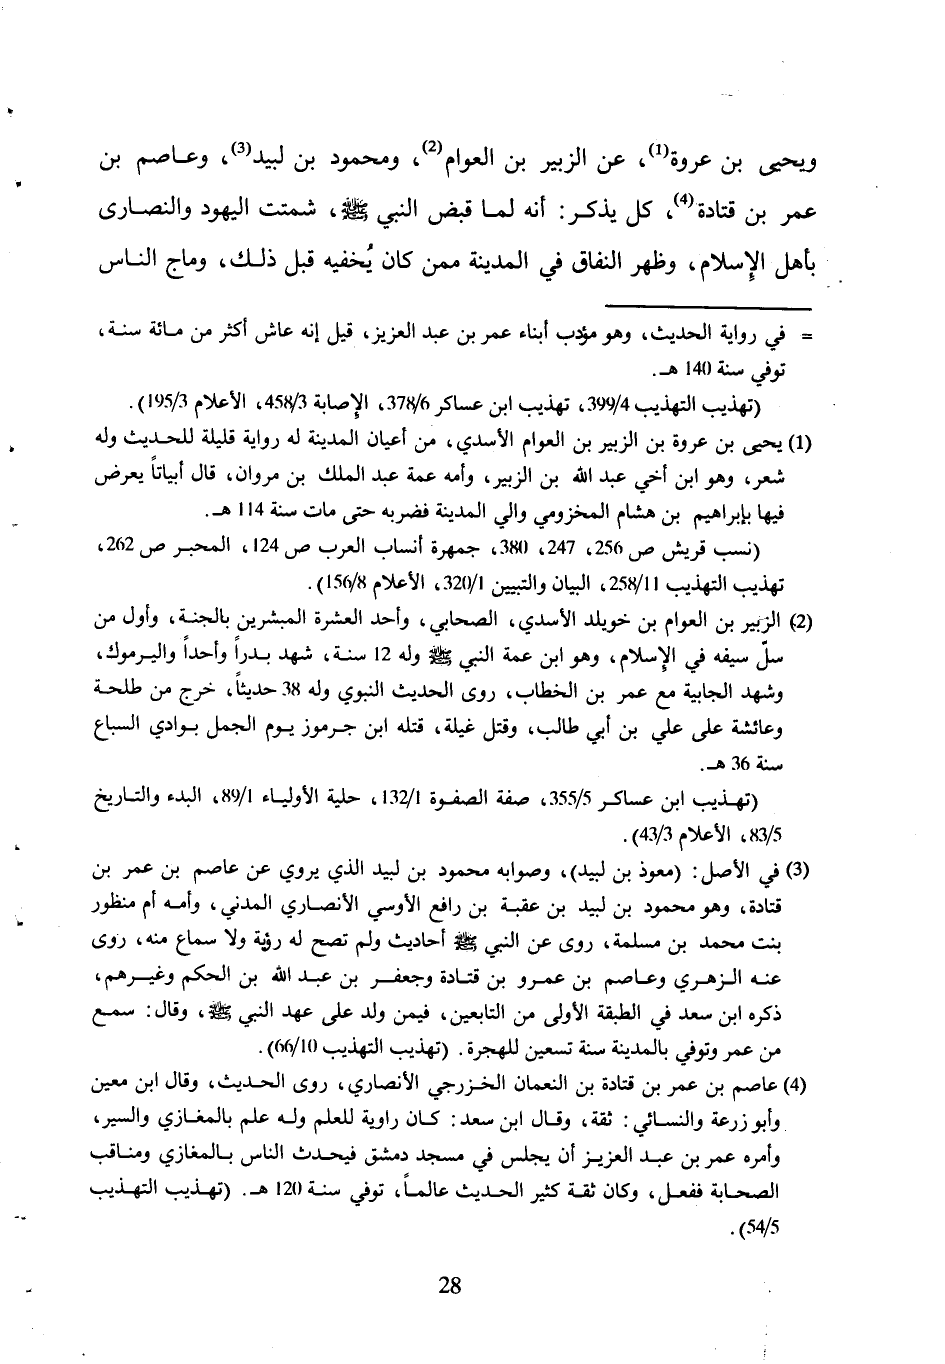 ويحيى بن عروة(1)، عن الزبير بن العوام(2)، ومحمود بن لبيد(3)، وعاصم بن
عمر بن قتادة(4)، كل يذكر: أنه لما قبض النبي ﷺ، شمتت اليهود والنصارى
بأهل الإسلام، وظهر النفاق في المدينة ممن كان يُخفيه قبل ذلك، وماج الناس
= في رواية الحديث، وهو مؤدب أبناء عمر بن عبد العزيز، قيل إنه عاش أكثر من مائة سنة،
توفي سنة 140 هـ.
(تهذيب التهذيب 399/4، تهذيب ابن عساكر 378/6، الإصابة 458/3، الأعلام 195/3).
(1) يحيى بن عروة بن الزبير بن العوام الأسدي، من أعيان المدينة له رواية قليلة للحديث وله
شعر، وهو ابن أخي عبد الله بن الزبير، وأمه عمة عبد الملك بن مروان، قال أبياتاً يعرض
فيها بإبراهيم بن هشام المخزومي والي المدينة فضربه حتى مات سنة 114 هـ.
(نسب قريش ص 256، 247، 380، جمهرة أنساب العرب ص 124، المحبر ص 262،
تهذيب التهذيب 258/11، البيان والتبيين 320/1، الأعلام 156/8).
(2) الزبير بن العوام بن خويلد الأسدي، الصحابي، وأحد العشرة المبشرين بالجنة، وأول من
سلّ سيفه في الإسلام، وهو ابن عمة النبي ﷺ وله 12 سنة، شهد بدراً وأحداً واليرموك،
وشهد الجابية مع عمر بن الخطاب، روى الحديث النبوي وله 38 حديثاً، خرج من طلحة
وعائشة على علي بن أبي طالب، وقتل غيلة، قتله ابن جرموز يوم الجمل بوادي السباع
سنة 36 هـ.
(تهذيب ابن عساكر 355/5، صفة الصفوة 132/1، حلية الأولياء 89/1، البدء والتاريخ
83/5، الأعلام 43/3).
(3) في الأصل: (معوذ بن لبيد)، وصوابه محمود بن لبيد الذي يروي عن عاصم بن عمر بن
قتادة، وهو محمود بن لبيد بن عقبة بن رافع الأوسي الأنصاري المدني، وأمه أم منظور
بنت محمد بن مسلمة، روى عن النبي ﷺ أحاديث ولم تصح له رؤية ولا سماع منه، روى
عنه الزهري وعاصم بن عمرو بن قتادة وجعفر بن عبد الله بن الحكم وغيرهم،
ذكره ابن سعد في الطبقة الأولى من التابعين، فيمن ولد على عهد النبي ﷺ، وقال: سمع
من عمر وتوفي بالمدينة سنة تسعين للهجرة. (تهذيب التهذيب 66/10).
(4) عاصم بن عمر بن قتادة بن النعمان الخزرجي الأنصاري، روى الحديث، وقال ابن معين
وأبو زرعة والنسائي: ثقة، وقال ابن سعد: كان راوية للعلم وله علم بالمغازي والسير،
وأمره عمر بن عبد العزيز أن يجلس في مسجد دمشق فيحدث الناس بالمغازي ومناقب
الصحابة ففعل، وكان ثقة كثير الحديث عالماً، توفي سنة 120 هـ. (تهذيب التهذيب
54/5).
28